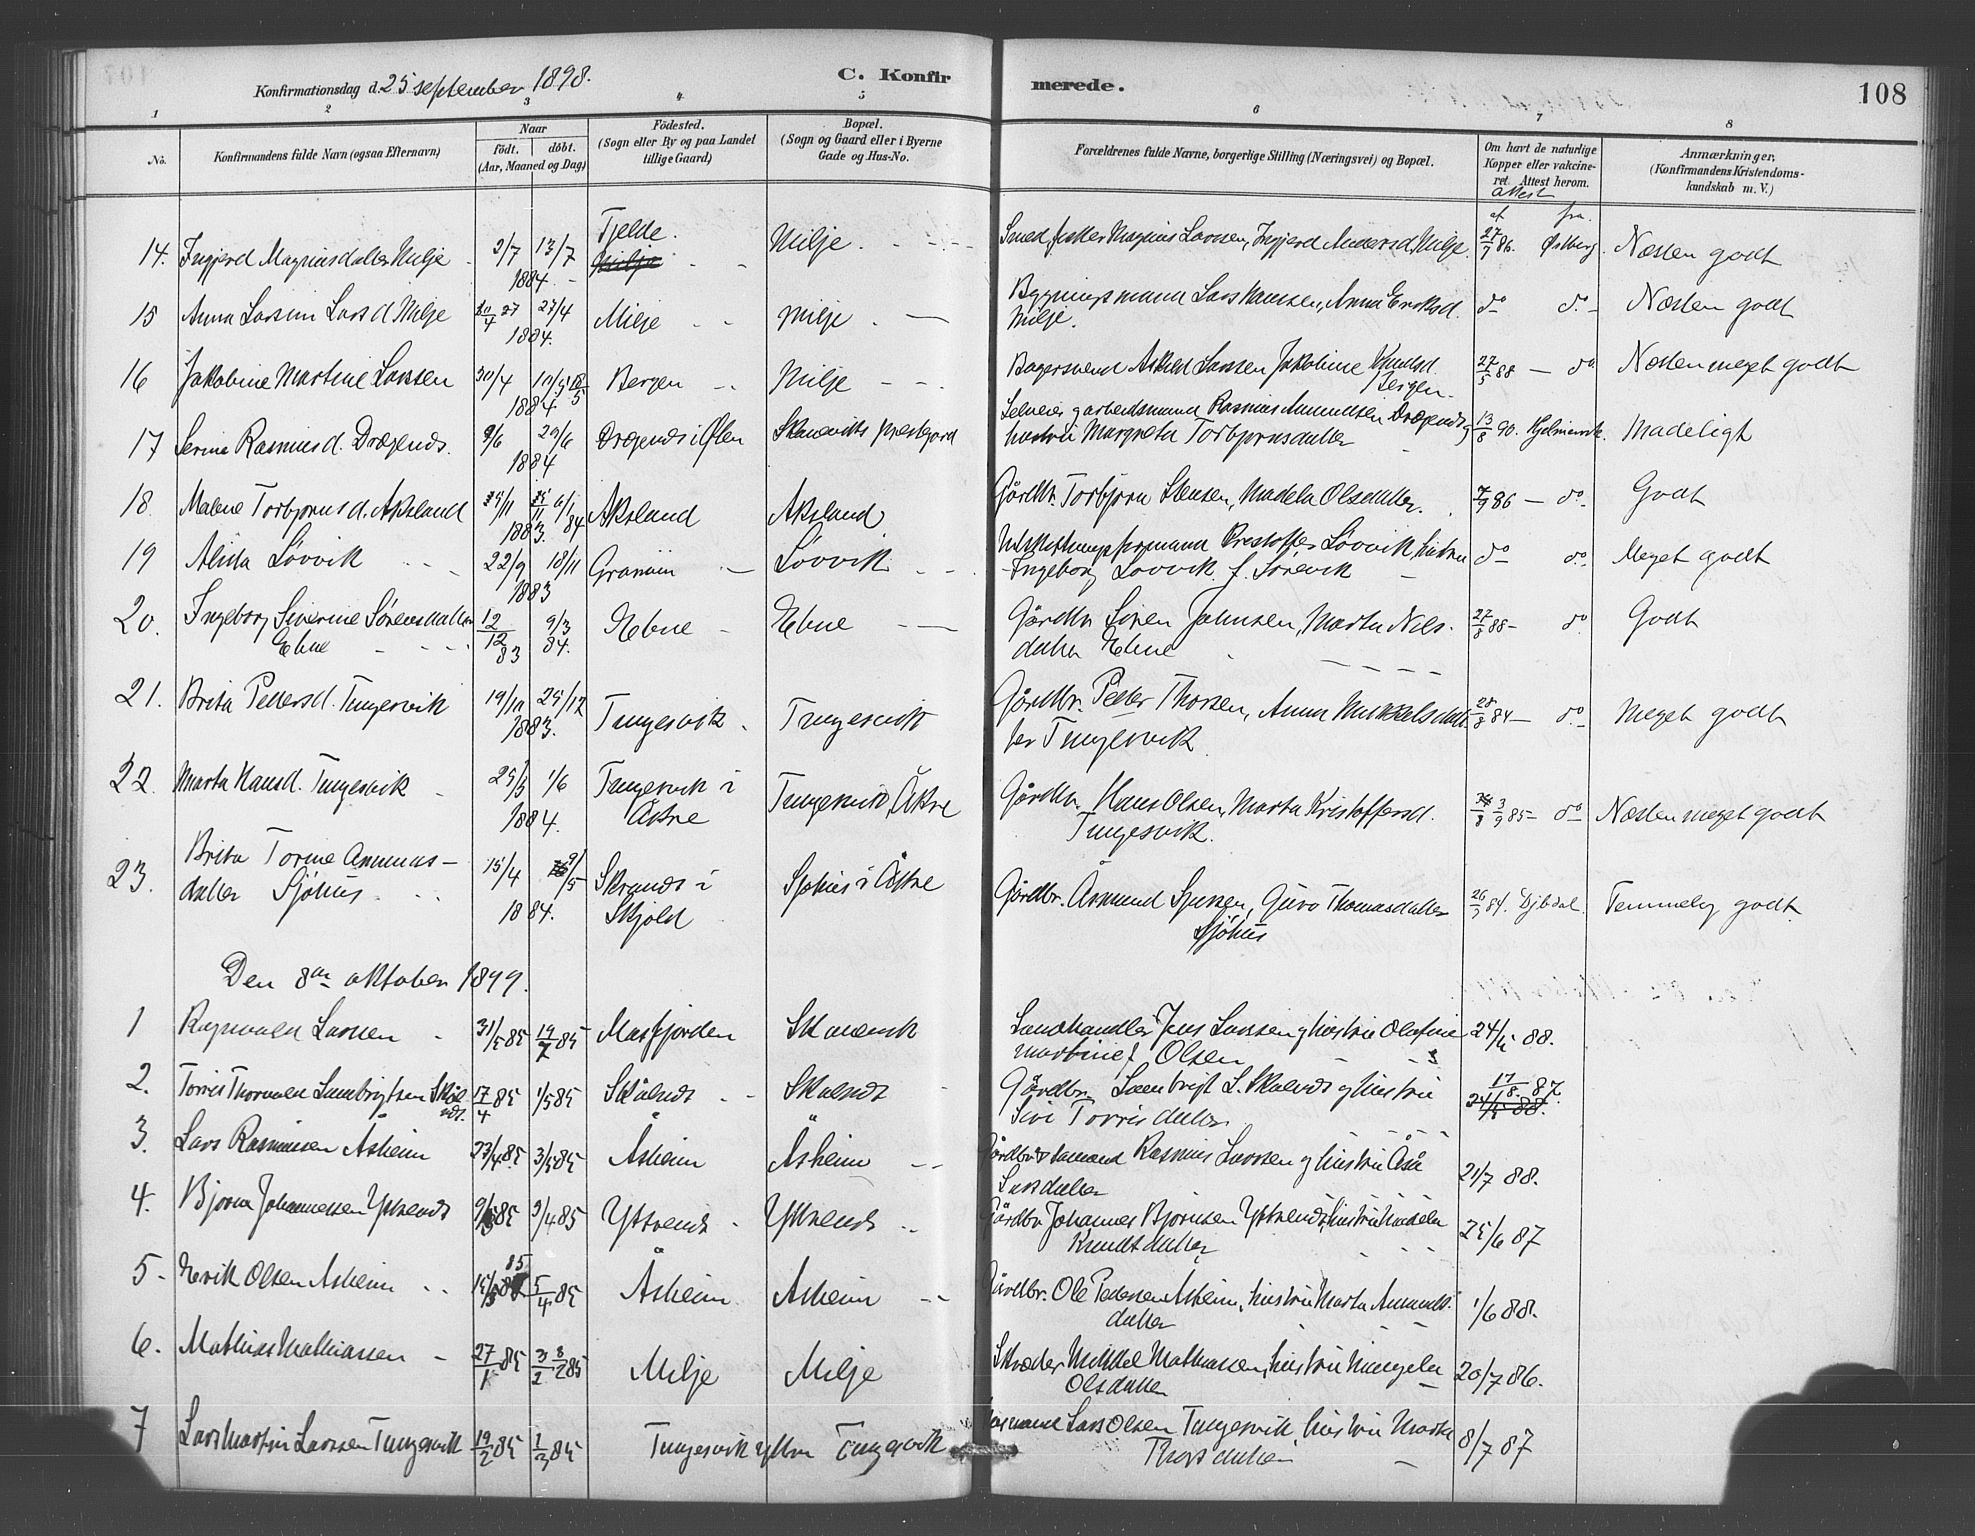 C. Konfirmerede. 108
Konfirmationsdag d. 25 september 1898.
1 2 3 4 5 6 7 8
No.
Konfirmandens fulde Navn (ogsaa Efternavn)
Naar
födt. döbt.
(Aar, Maaned og Dag)
Födested.
(Sogn eller By og paa Landet
tillige Gaard)
Bopæl.
(Sogn og Gaard eller i Byerne
Gade og Hus-No.
Forældrenes fulde Navne, borgerlige Stilling (Næringsvei) og Bopæl.
Om havt de naturlige
Kopper eller vakcine-
ret. Attest herom.
Anmærkninger,
(Konfirmandens Kristendoms-
kundskab m. V.)
attest
af fra
14. Ingjerd Magnusdatter Milje 2/7 13/7 1884 Tjelde. Milje Magnus Larssen, Ingjerd Andersd. Milje. 27/7 86. Østberg. Næsten godt
15 Anna Larsd Milje 27/4 1884. Milje Milje Bygningsmand Lars Hansen, Anna Eriksd. Milje. do do Næsten godt
16 Jakobine Martine Larssen 30/4 1884 Bergen Milje Larssen Jakobine Knudsd. Bergen. 27/5 88 do Næsten meget godt
17 Serine Rasmusd. Drægends. 9/6 29/6 1884 Drægends i Ølen Skaanevik præstegård Selveier og arbeidsmand Rasmus Amundsen Drægends og hustru Margreta Torbjørnsdatter 13/8 90. Madeligt
18. Malene Torbjørnsd. Aksland 25/11 1883. 6/1 84 Aksland Aksland Gårdbr. Torbjørn Stensen, Madela Olsdatter. 7/9 86 do Godt
19 Alida Løvvik 22/9 18/11 1883 Granvin Løvvik Løvvik hustru Ingeborg Løvvik f. Sørevik do do Meget godt
20. Ingeborg Siverine Sørensdatter Ebne 12/12 83 9/3 84. Ebne Ebne Gårdbr Søren Johnsen, Marta Nilsdatter Ebne 27/8 88 do Godt
21. Brita Pedersd. Tungesvik 19/10 25/12 1883. Tungesvik Tungesvik Gårdbr. Peder Thorsen, Anna Mikkelsdatter Tungesvik 28/8 84 do Meget godt
22. Marta Hansd. Tungesvik 25/5 1/6 1884. Tungesvik i Åkre Tungesvik, Åkre Gårdbr. Hans Olsen, Marta Kristoffersd. Tungesvik. 3/9 85 do Næsten meget godt
23. Brita Torine Åsmundsdatter Sjöhus 15/4 9/5 1884. Skrands i Skjold Sjøhus i Åkre Gårdbr. Åsmund Guro Thomasdatter Sjöhus 26/9 84. Temmelig godt
Den 8de oktober 1899.
1 Ragnvald Larssen 31/5 85 19/7 85 Masfjorden Skånevik Landhandler Jens Larssen og hustru Olafine Martine f. Olsen 24/5 88.
2. Torris Thormod Lambrigtsen Skålnds. 17/4 85 1/5 85 Skålnds Skålnds Gårdbr. Lambrigt L. Skålnds og hustru Siri Torrisdatter 17/8 87. 24/5 88.
3. Lars Rasmussen Åsheim 23/4 85 3/5 85 Åsheim Åsheim Rasmus Larssen og hustru Åsa Larsdatter 21/7 88.
4. Bjørn Johannessen Ytrends 85 3/4 85 Ytrends Ytrends Gårdbr Johannes Bjørnsen Ytrends, hustru Madela Knudtsdatter 25/6 87
5. Erik Olsen Åsheim 85 5/4 85 Åsheim Åsheim Gårdbr. Ole Pedersen Åsheim, hustru Marta Amundsdatter 1/6 88.
6. Mathias Mathiassen 27/1 85 85 Milje Milje Skræder Mikkel Mathiassen, hustru Olsdatter 20/7 86.
7 Lars Martin Larssen Tungesvik 19/2 85 1/3 85 Tungesvik ytre Tungesvik Lars Olsen Tungesvik, hustru Marta Thorsdatter 8/7 87